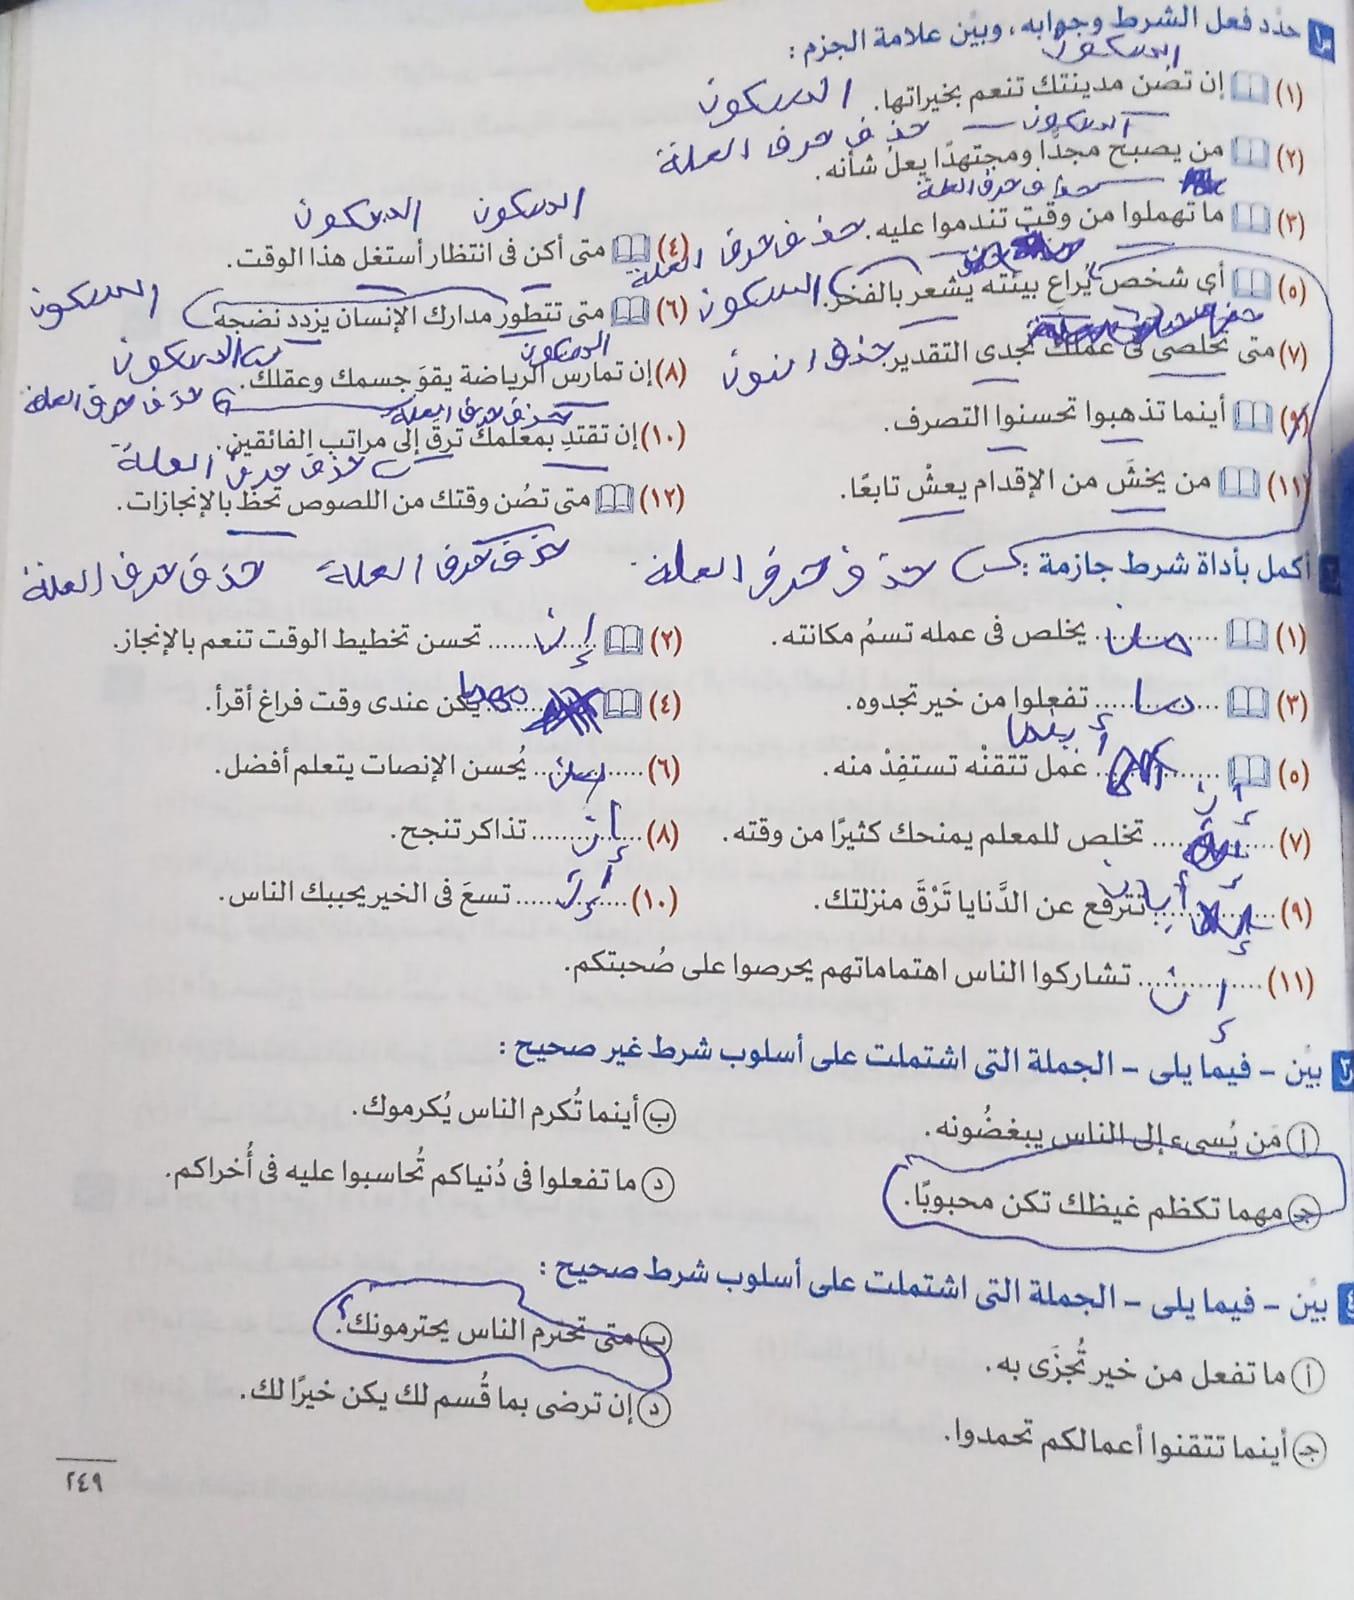 ١ حدّد فعل الشرط وجوابه، وبيّن علامة الجزم :
السكون
(١) إن تصُن مدينتك تنعم بخيراتها. السكون
السكون – حذف حرف العلة
(٢) من يصبح مجدًّا ومجتهدًا يعلُ شأنه.
حذف حرف العلة
(٣) ما تهملوا من وقتٍ تندموا عليه. حذف حرف العلة
السكون السكون
(٤) متى أكن فى انتظار أستغل هذا الوقت.
(٥) أي شخص يُراع بيئته يشعر بالفخر. السكون
(٦) متى تتطور مدارك الإنسان يزدد نضجه السكون
(٧) متى تخلصى فى عملك تجدى التقدير. حذف النون
السكون السكون
(٨) إن تمارس الرياضة يقوَ جسمك وعقلك. حذف حرف العلة
(٩) أينما تذهبوا تحسنوا التصرف.
حذف حرف العلة
(١٠) إن تقتدِ بمعلمك ترقَ إلى مراتب الفائقين.
حذف حرف العلة
(١١) من يخشَ من الإقدام يعشْ تابعًا.
(١٢) متى تصُن وقتك من اللصوص تحظَ بالإنجازات.
حذف حرف العلة حذف حرف العلة حذف حرف العلة
٢ أكمل بأداة شرط جازمة :
(١) ............ يخلص فى عمله تسمُ مكانته.
(٢) إن ............ تحسن تخطيط الوقت تنعم بالإنجاز.
(٣) ما ............ تفعلوا من خير تجدوه.
(٤) مهما ............ يكن عندى وقت فراغ أقرأ.
أينما
(٥) ............ عمل تتقنْه تستفِدْ منه.
(٦) ............ يُحسن الإنصات يتعلم أفضل.
إن
(٧) ............ تخلص للمعلم يمنحك كثيرًا من وقته.
(٨) إن ............ تذاكر تنجح.
(٩) أيان ............ تترفع عن الدَّنايا تَرْقَ منزلتك.
(١٠) إن ............ تسعَ فى الخير يحببك الناس.
(١١) إن ............ تشاركوا الناس اهتماماتهم يحرصوا على صُحبتكم.
٣ بيّن – فيما يلى – الجملة التى اشتملت على أسلوب شرط غير صحيح :
أ مَن يُسىء إلى الناس يبغضُونه.
ب أينما تُكرم الناس يُكرموك.
جـ مهما تكظم غيظك تكن محبوبًا.
د ما تفعلوا فى دُنياكم تُحاسبوا عليه فى أُخراكم.
٤ بيّن – فيما يلى – الجملة التى اشتملت على أسلوب شرط صحيح :
أ ما تفعل من خير تُجزَى به.
ب متى تحترم الناس يحترمونك. ؟
جـ أينما تتقنوا أعمالكم تحمدوا.
د إن ترضى بما قُسم لك يكن خيرًا لك.
٢٤٩